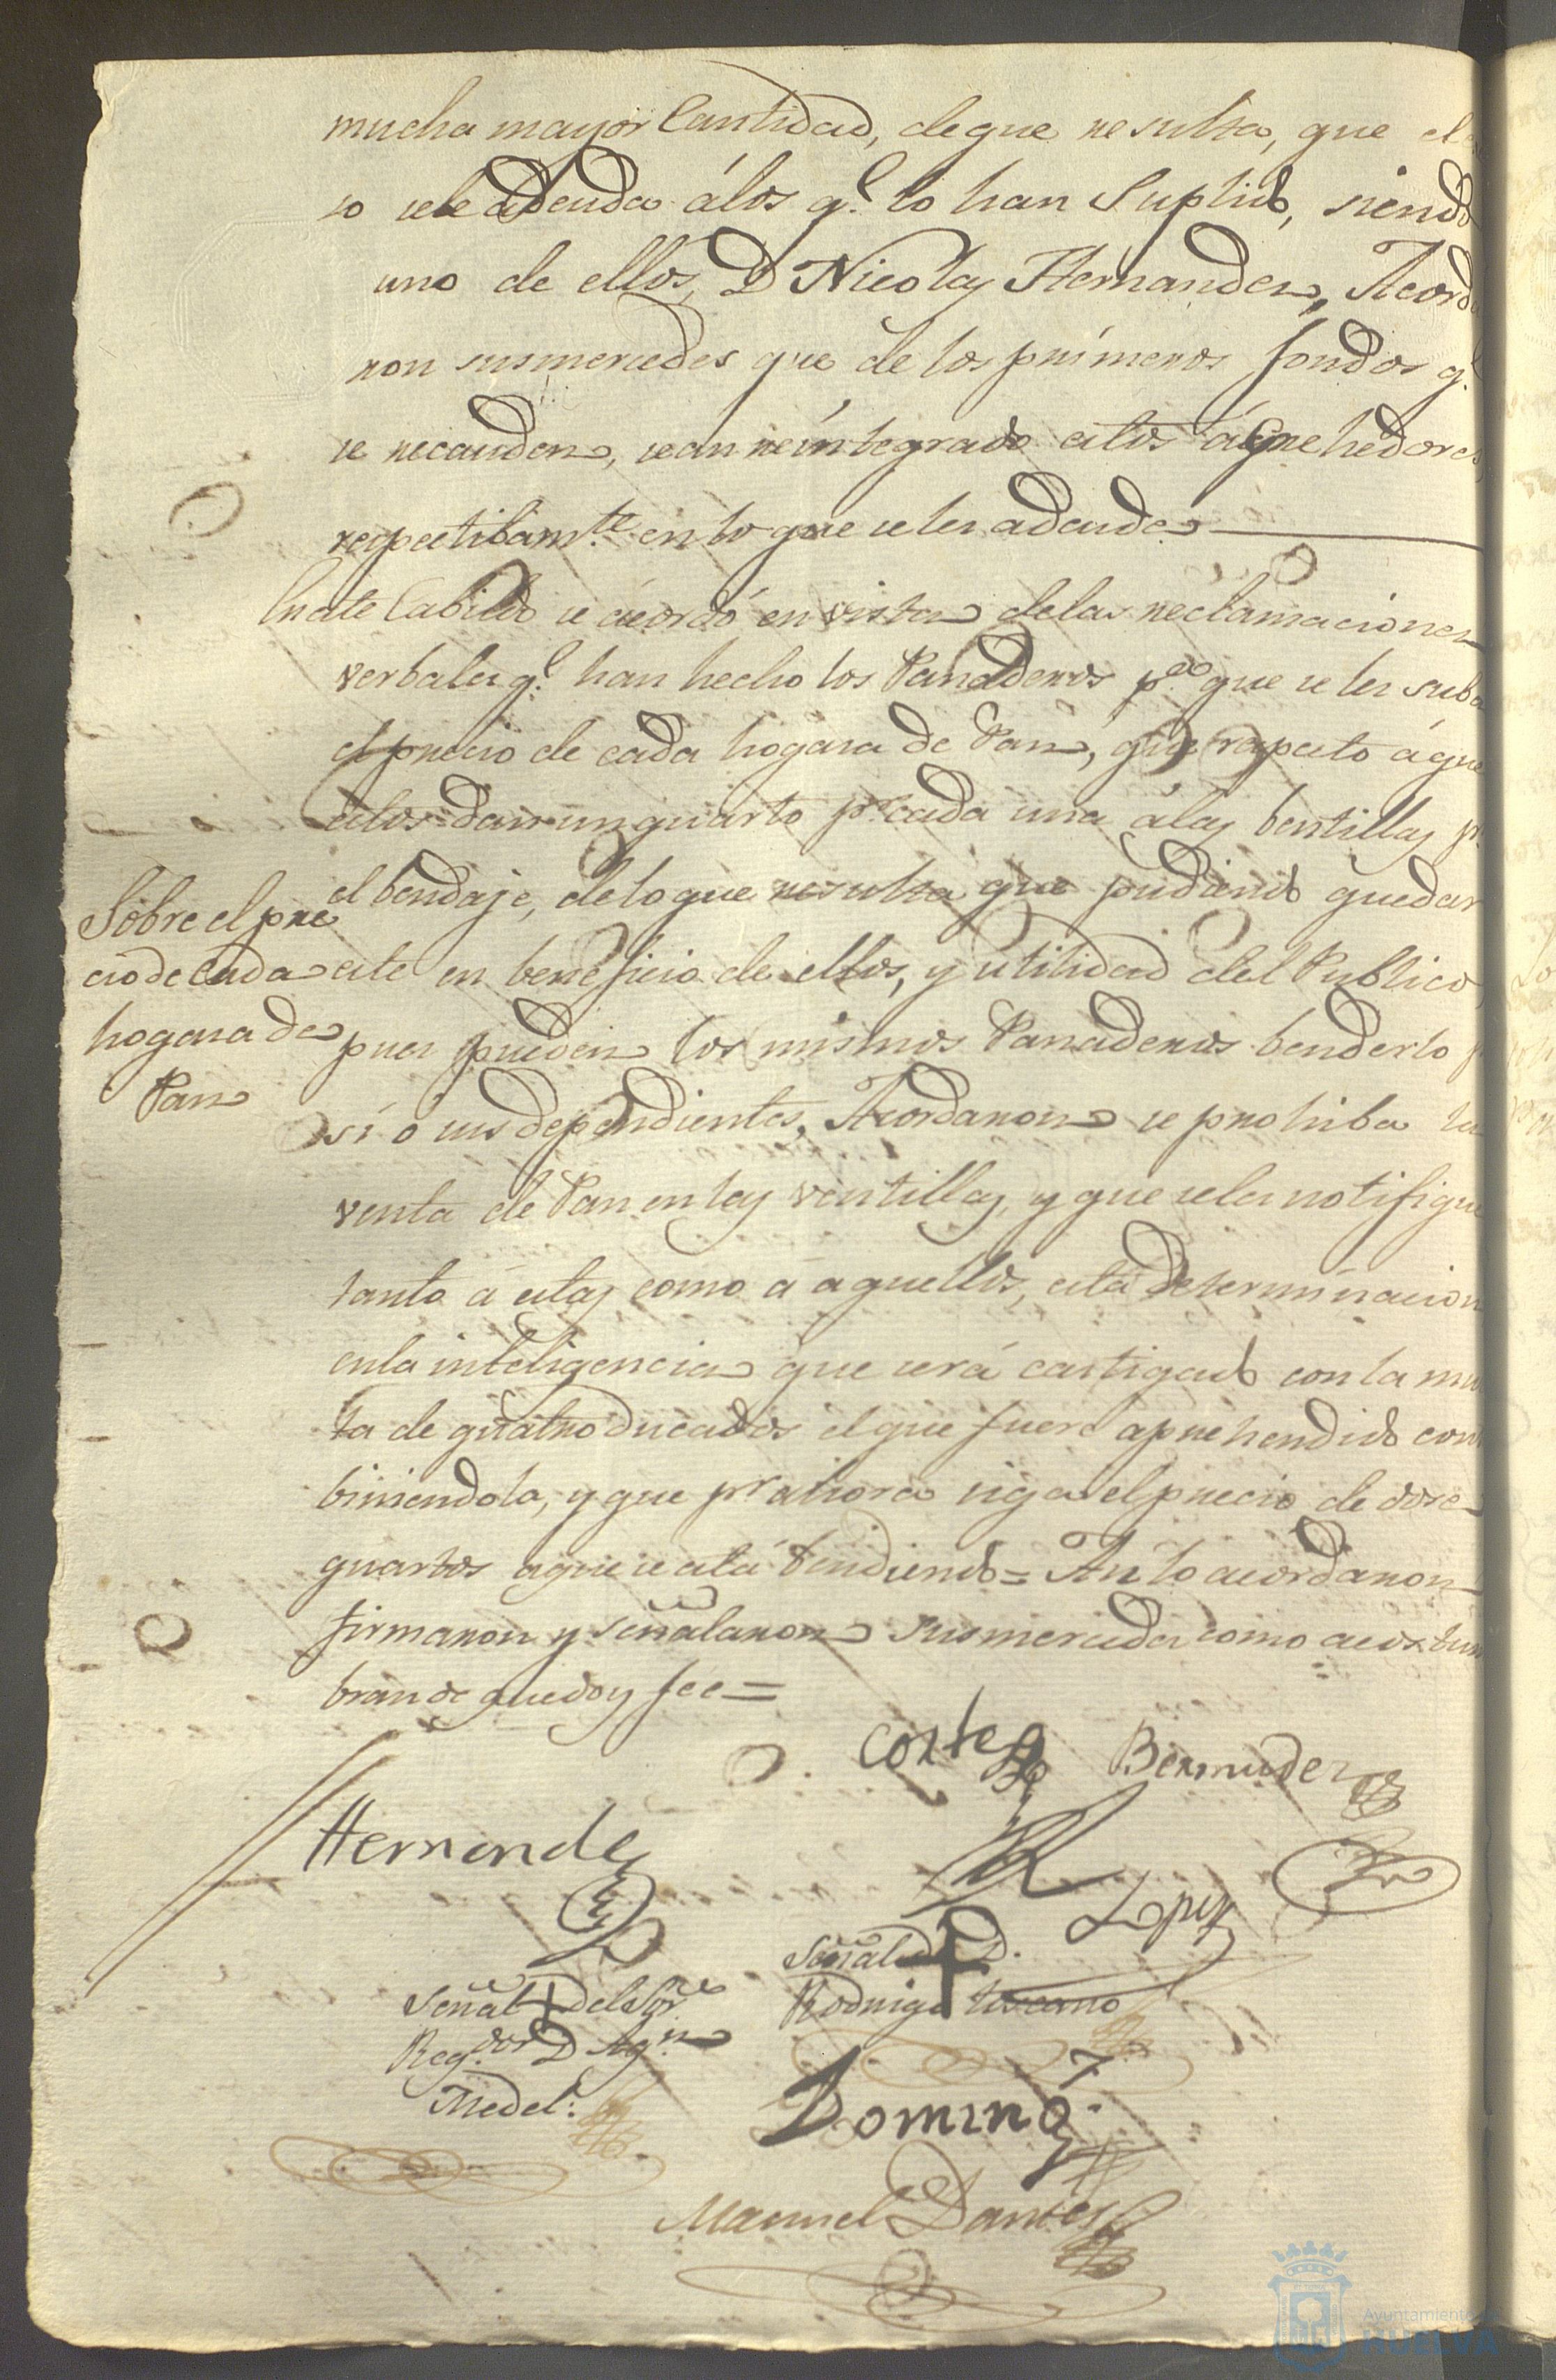 mucha mayor Cantidad, deque resulta, que el
so sele adeuda álos q.e lo han Suplido, siendo
uno de ellos, D Nicolas Hernandez, Acorda
ron susmercedes que de los primeros fondos q.e
se recauden, sean reintegrado estos ácrehedores
respectibam.te en lo que seles adeude
Sobre el pre
cio de cada
hogasa de
Pan
En este Cabildo se acordó en vista delas reclamaciones
verbales q.e han hecho los Panaderos p.a que se les suba
el precio de cada hogasa de Pan, que respecto á que
estos dan un quarto p.r cada una álas bentillas p.r
el bendaje, delo que resulta que pudiendo quedar
este en beneficio de ellos, y utilidad del Publico,
pues pueden los mismos Panaderos benderlo p
sí ó sus dependientes, Acordaron se prohiba la
venta de Pan en las ventillas, y que seles notifique
tanto á estas como á aquellos, esta determinacion
enla inteligencia que será castigado con la mul
ta de quatro ducados el que fuere aprehendido con
biniendola, y que p.r ahora siga el precio de dose
quartos aque se está bendiendo= Asi lo acordaron
firmaron y señalaron susmercedes como acostum
bran de que doy fee=
Cortes Bermudez
Hernandez
Lopez
Señal de D.
Rodrigo Toscano
Señal del Sor
Reg.dor D Ag.n
Medel.
Doming.z
Manuel Dantes
Ayuntamiento de
HUELVA